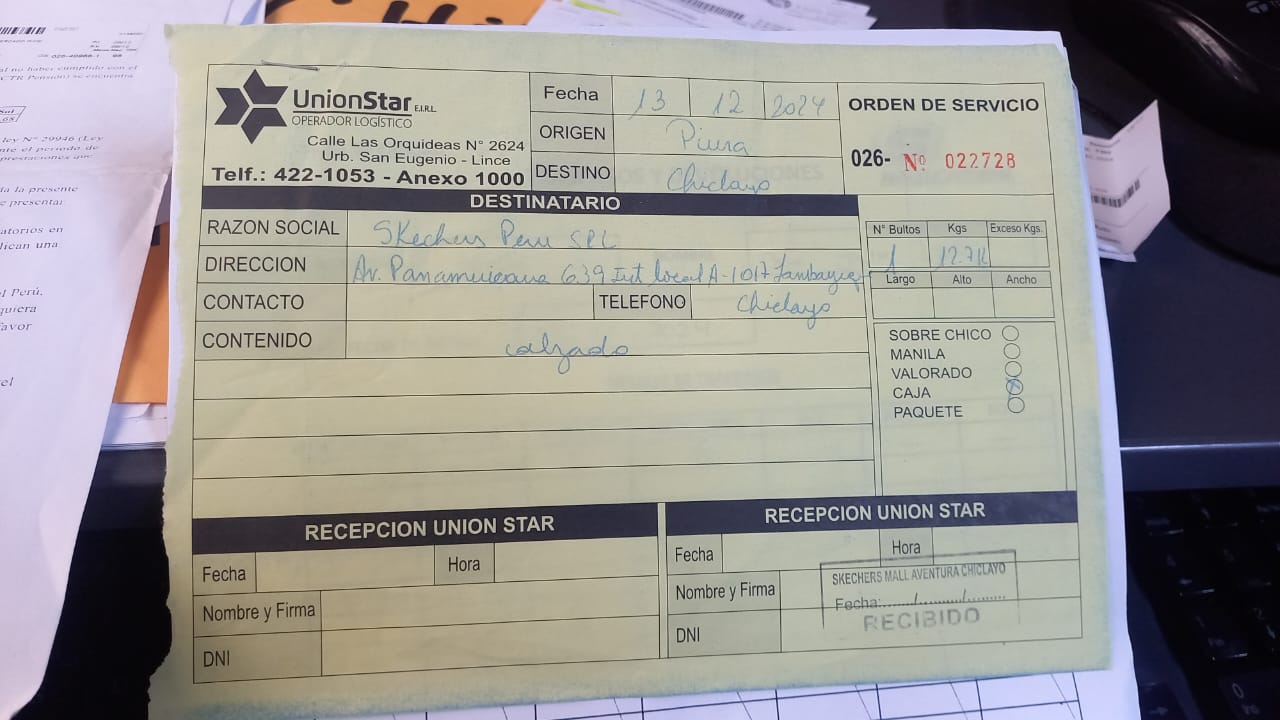 UnionStar E.I.R.L.
OPERADOR LOGÍSTICO
Calle Las Orquideas N° 2624
Urb. San Eugenio - Lince
Telf.: 422-1053 - Anexo 1000
Fecha 13 12 2024
ORIGEN Piura
DESTINO Chiclayo
ORDEN DE SERVICIO
026- Nº 022728
DESTINATARIO
RAZON SOCIAL Skechers Peru SRL
DIRECCION Av. Panamericana 639 Int local A-1017 Lambayeque
CONTACTO TELEFONO Chiclayo
CONTENIDO calzado
N° Bultos Kgs Exceso Kgs.
1 12.7K
Largo Alto Ancho
SOBRE CHICO
MANILA
VALORADO
CAJA
PAQUETE
RECEPCION UNION STAR
Fecha Hora
Nombre y Firma
DNI
RECEPCION UNION STAR
Fecha Hora
Nombre y Firma
DNI
SKECHERS MALL AVENTURA CHICLAYO
Fecha:....../........./.........
RECIBIDO